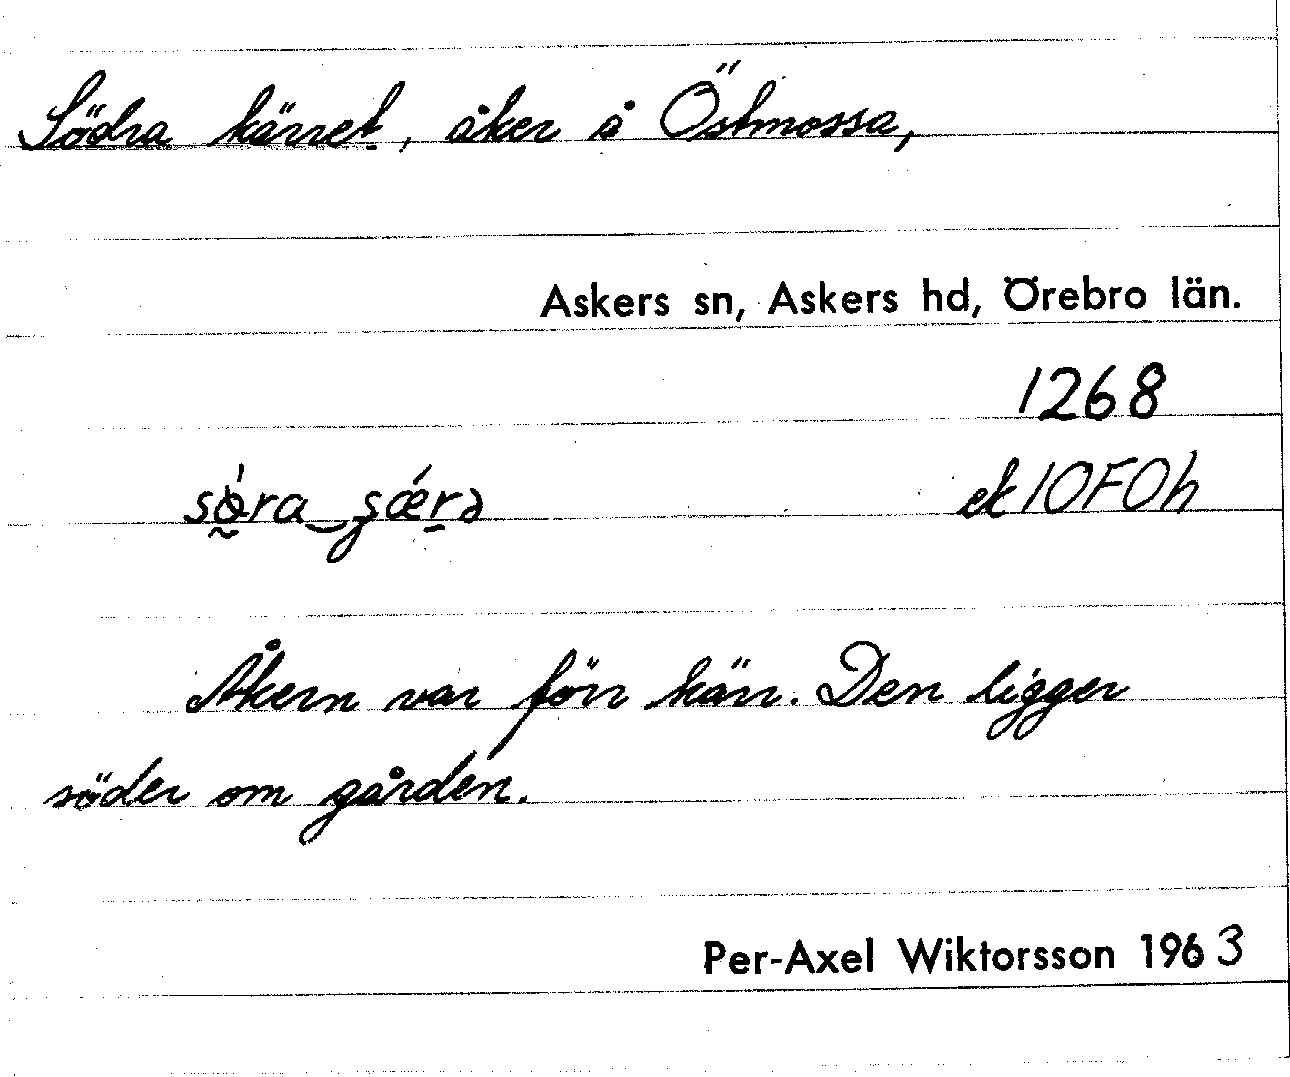 Södra kärret, åker å Östmossa,
Askers sn, Askers hd, Örebro län.
1268
sǿ̰ra‿şǽr̲ə ek 10F0h
Åkern var förr kärr. Den ligger
söder om gården.
Per-Axel Wiktorsson 1963